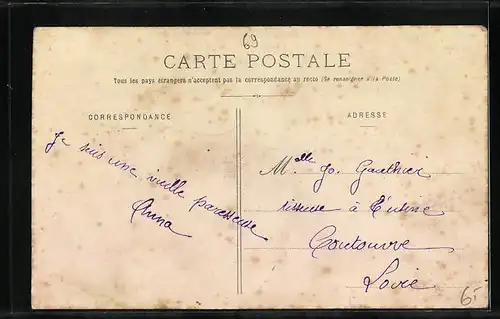 69
CARTE POSTALE
Tous les pays étrangers n'acceptent pas la correspondance au recto (Se renseigner à la Poste)
CORRESPONDANCE
Je suis une vieille paresseuse
Anna
ADRESSE
Melle Jo. Gauthier
tisseuse à l'usine
Coutouvre
Loire
6-